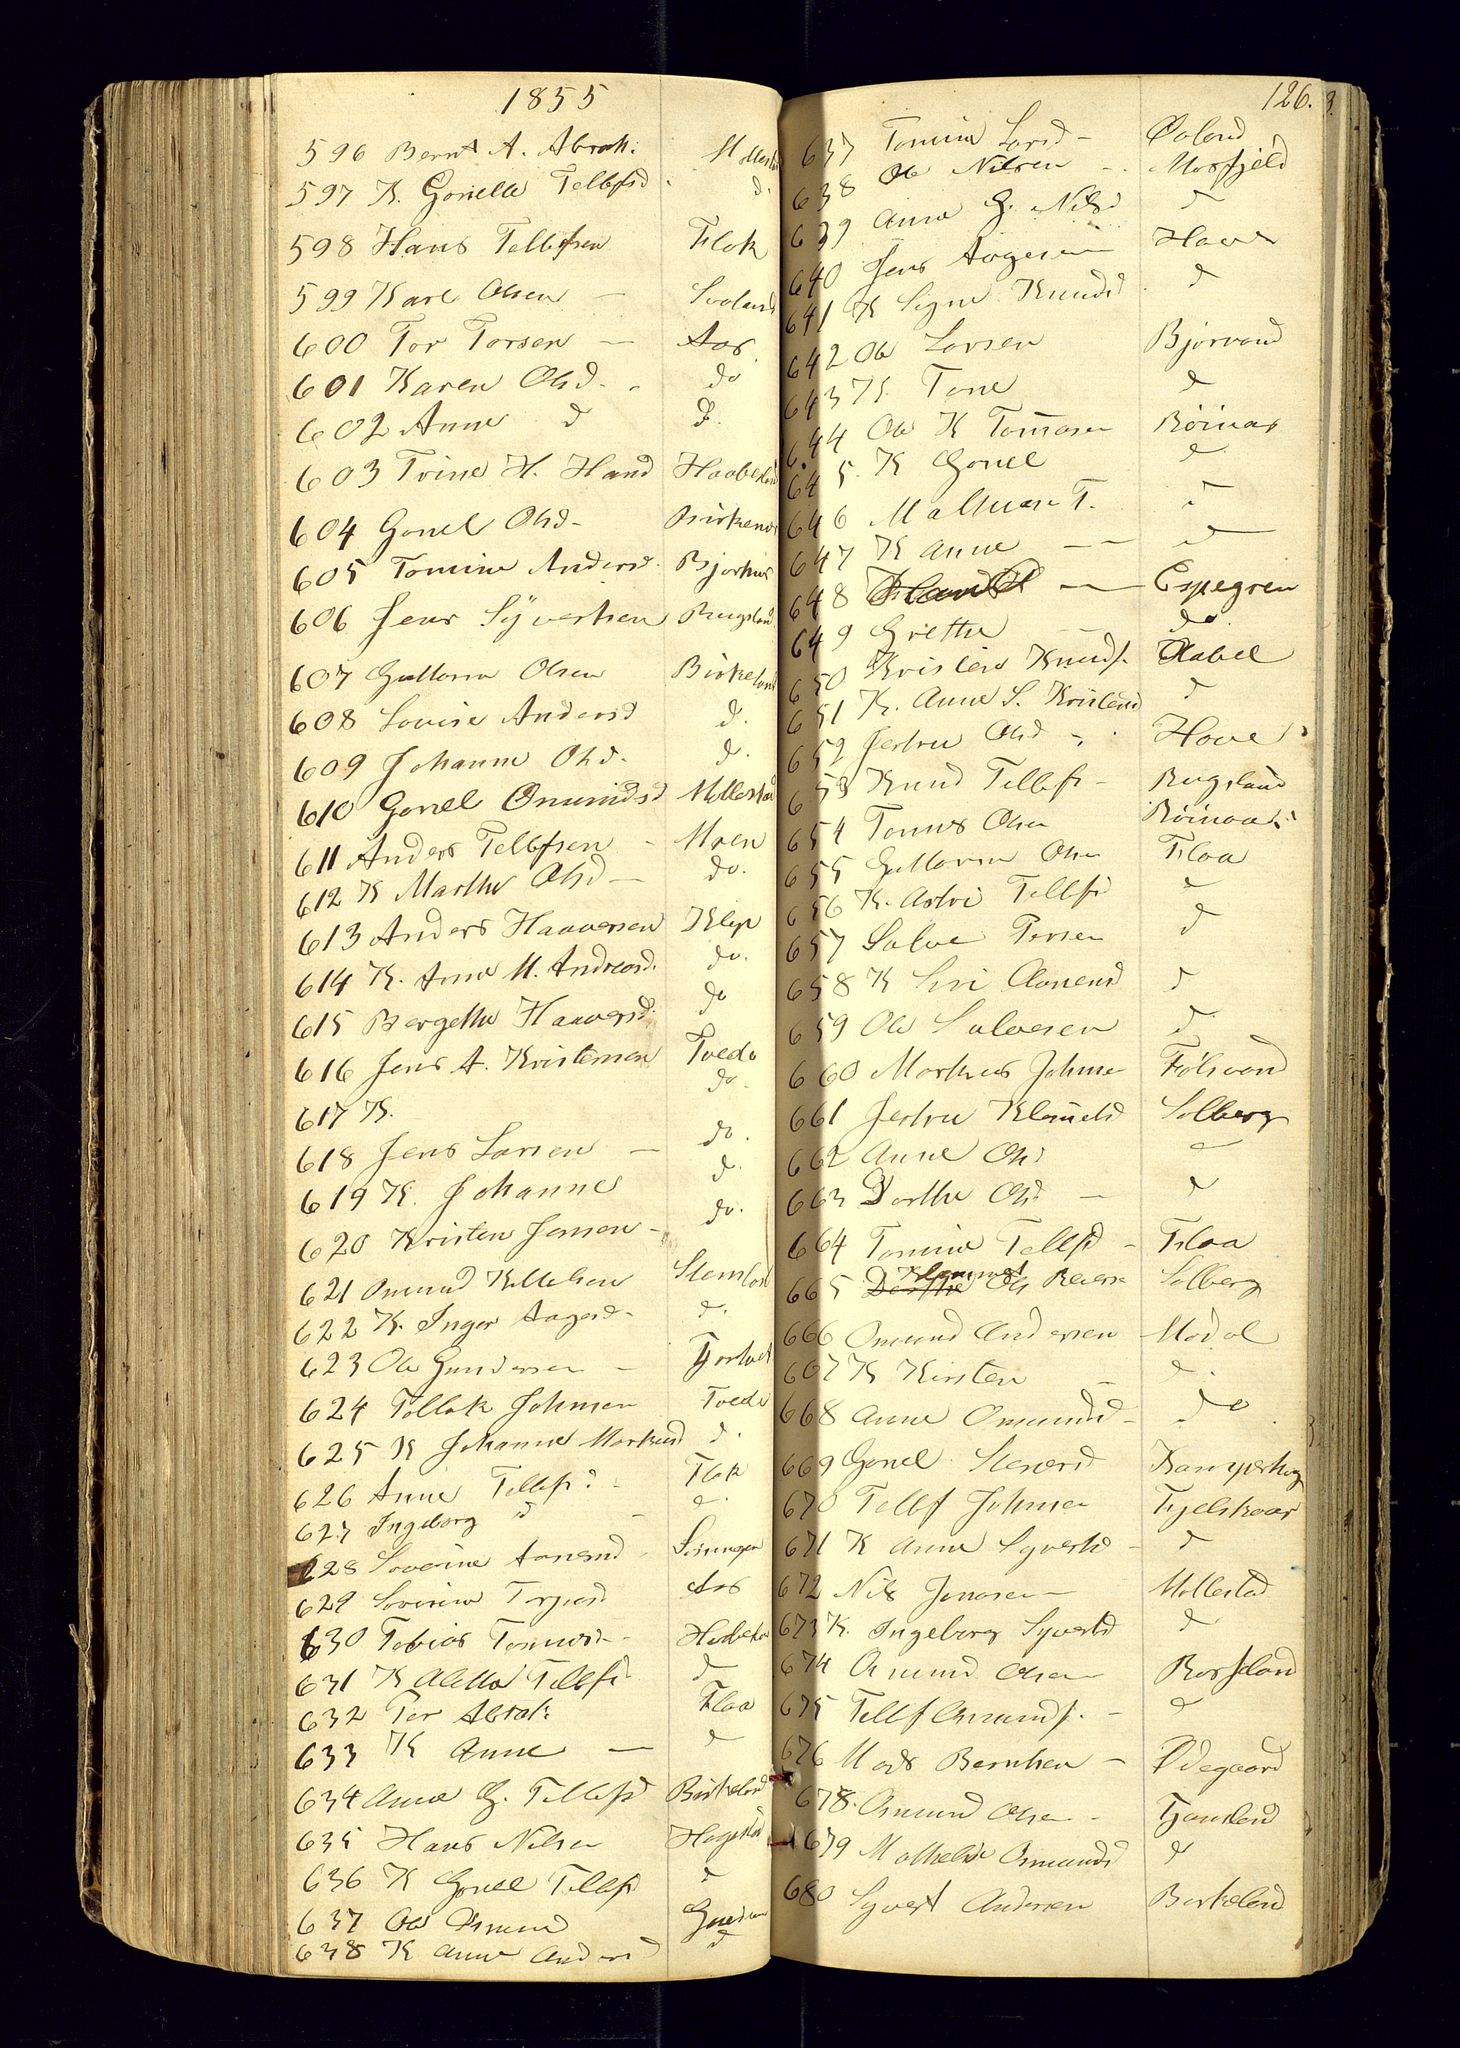 1855
596 Bernt A. Abrah: Mollestad
597 K. Gonelle Tellefsd. d.
598 Hans Tellefsen Flak
599 Karl Olsen —
600 Tor Torsen — Aas.
601 Karen Olsd. do
602 Anne d d.
603 Trine H. Hansd Haabesland
604 Gonel Olsd - Birkenes
605 Tomine Andersd. Bjorkeos
606 Jens Syvertsen Rugsland
607 Guttorm Olsen Birkeland
608 Lovise Andersd d.
609 Johanne Olsd. d.
610 Gonel Omundsd Mollestad
611 Anders Tellefsen - Mren
612 K Marthe Olsd — do.
613 Anders Haavorsen Klep
614 K. Anne M. Andreasd. do.
615 Bergethe Haavorsd. do
616 Jens A. Kristensen Tvede
617 K. do.
618 Jens Larsen — do.
619 K. Johanne d.
620 Kristen Jensen - do.
621 Omund Kittelsen
622 K. Inger Aagesd - d.
623 Ole Gundersen -
624 Tellak Johnsen Tvede
625 K Johanne Markusd d.
626 Anne Tellefsd. Flak
627 Ingeborg d - d.
628 Severine Aanensd
629 Severine Terjesd Aas
630 Tobias Tomass -
631 K Alette Tellefsd d
632 Per Abrah: Flaa
633 K Anne — d
634 Anne G. Tellefsd Birkeland
635 Hans Nilsen
636 K Gonel Tellefsd d
637 Ole Omund
638 K Anne Andersd d
126.
637 Tomine Larsd - Øvland
638 Ole Nilsen - Mosfjeld
639 Anne G. Nilsd d
640 Jens Aagesen Hove
641 K Signe Knudsd. d
642 Ole Larsen Bjorvand
643 K. Tone d
644 Ole K Tomasen Röinaas
645. K Gonel d
646 T. d
647 K Anne — d
648 — Espegren
649 Grethe — do
650 Kristen Knuds. Oabel
651 K. Anne S. Kristensd d
652 Jertru Olsd Hove
653 Knud Tellefs - Rugsland
654 Tomas Olsen Röinaas
655 Guttorm Olsen Flaa
656 K. Astri Tellefsd d
657 Salve Persen d
658 K Siri Aanensd d
659 Ole Salvesen d
660 Markus Johnsen Fölsvand
661 Jertru Klemetsd Solberg
662 Anne Olsd d
663 Dorthe Olsd — d
664 Tomine Tellefsd - Flaa
665 Klemmet Ols Reiers Solberg
666 Omund Andersen Modal
667 K Kirsten — d.
668 Anne Omundsd - do
669 Gonel
670 Tellef Johnsen
671 K Anne Syvertsd - d
672 Nils Jonasen — Mollestad
673 K. Ingeborg Syvertsd d
674 Omund Olsen
675 Tellef Omunds. - d
676 Mads Berntsen - Ødegaard
678. Osmund Olsen - Tjomsland
679 Mathilde Osmundsd d
680 Syvert Andersen Berkeland